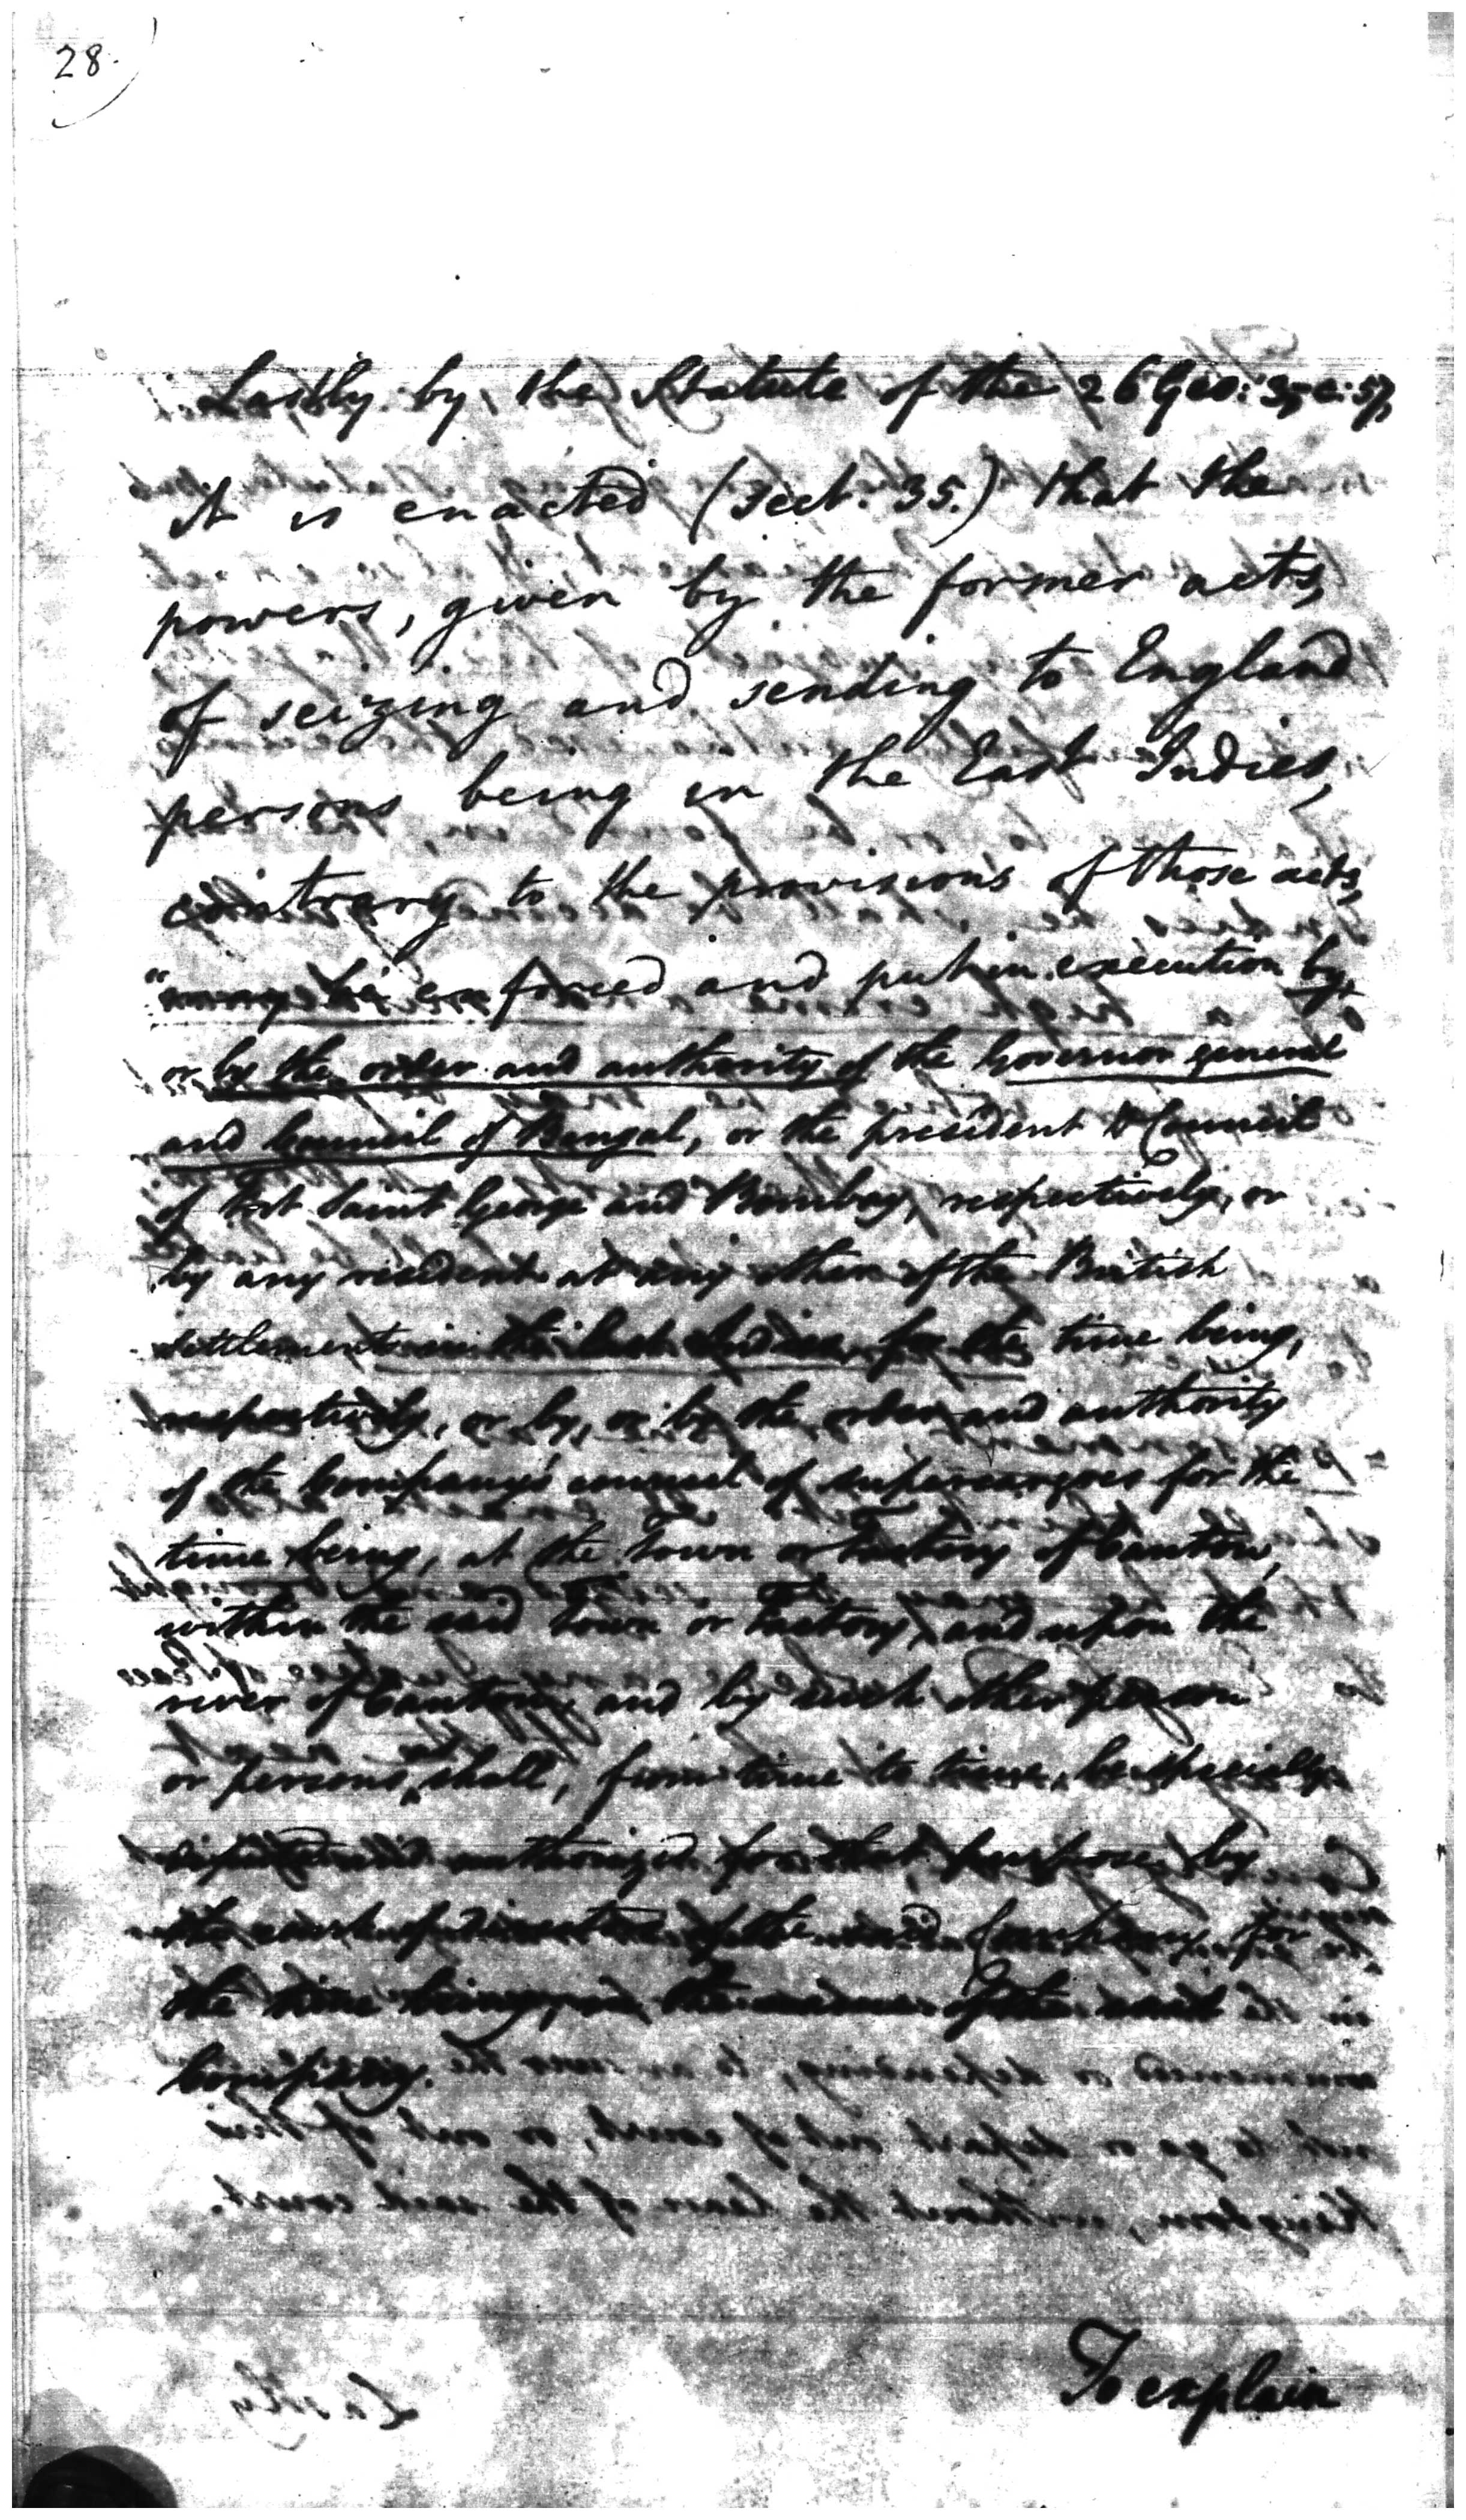 28.
Lastly by the Statute of the 26 Geo: 3, c: 57,
it is enacted (sect. 35.) that the
powers, given by the former acts,
of seizing and sending to England
persons being in the East Indies,
contrary to the provisions of those acts,
"may be enforced and put in execution by,
or by the order and authority of the Governor general
and Council of Bengal, or the president & Council
of Fort Saint George and Bombay, respectively, or
by any resident at any other of the British
settlements in the East Indies, for the time being,
respectively, or by, or by the order and authority
of the Company's council of supercargoes for the
time being, at the Town or Factory of Canton,
within the said Town or Factory, and upon the
river of Canton, and by such other person
or persons, shall, from time to time, be specially
authorized for that purpose by
the court of directors of the said Company for
the time being, of the said
Company.
To explain